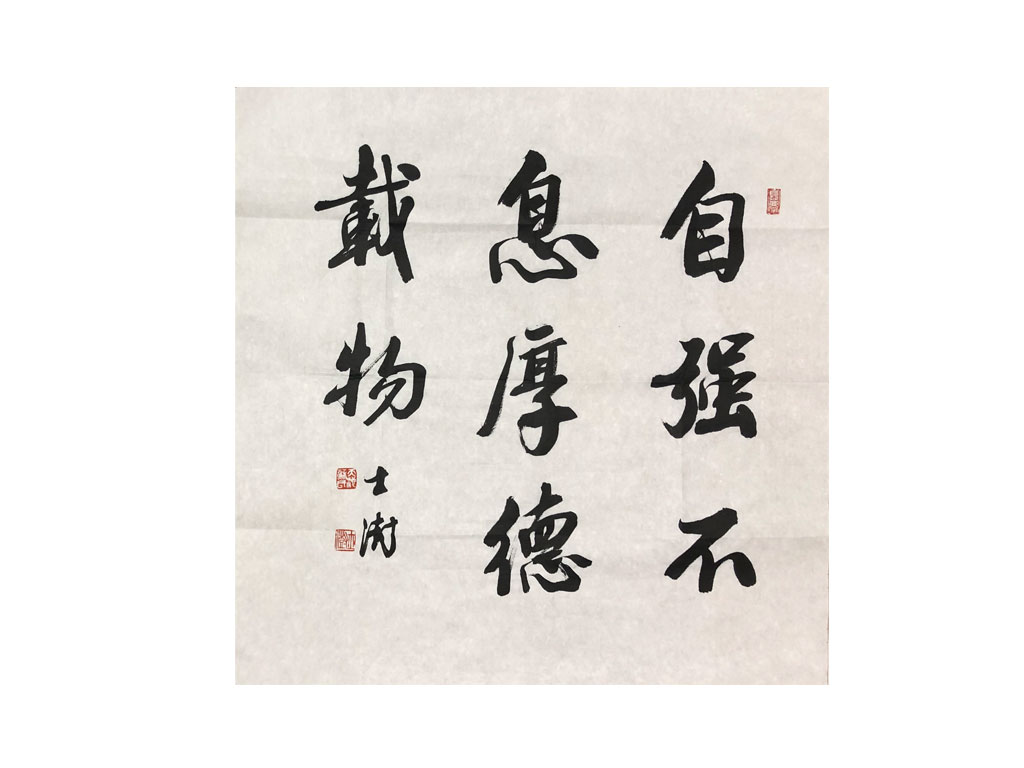 自强不
息厚德
載物
士澍